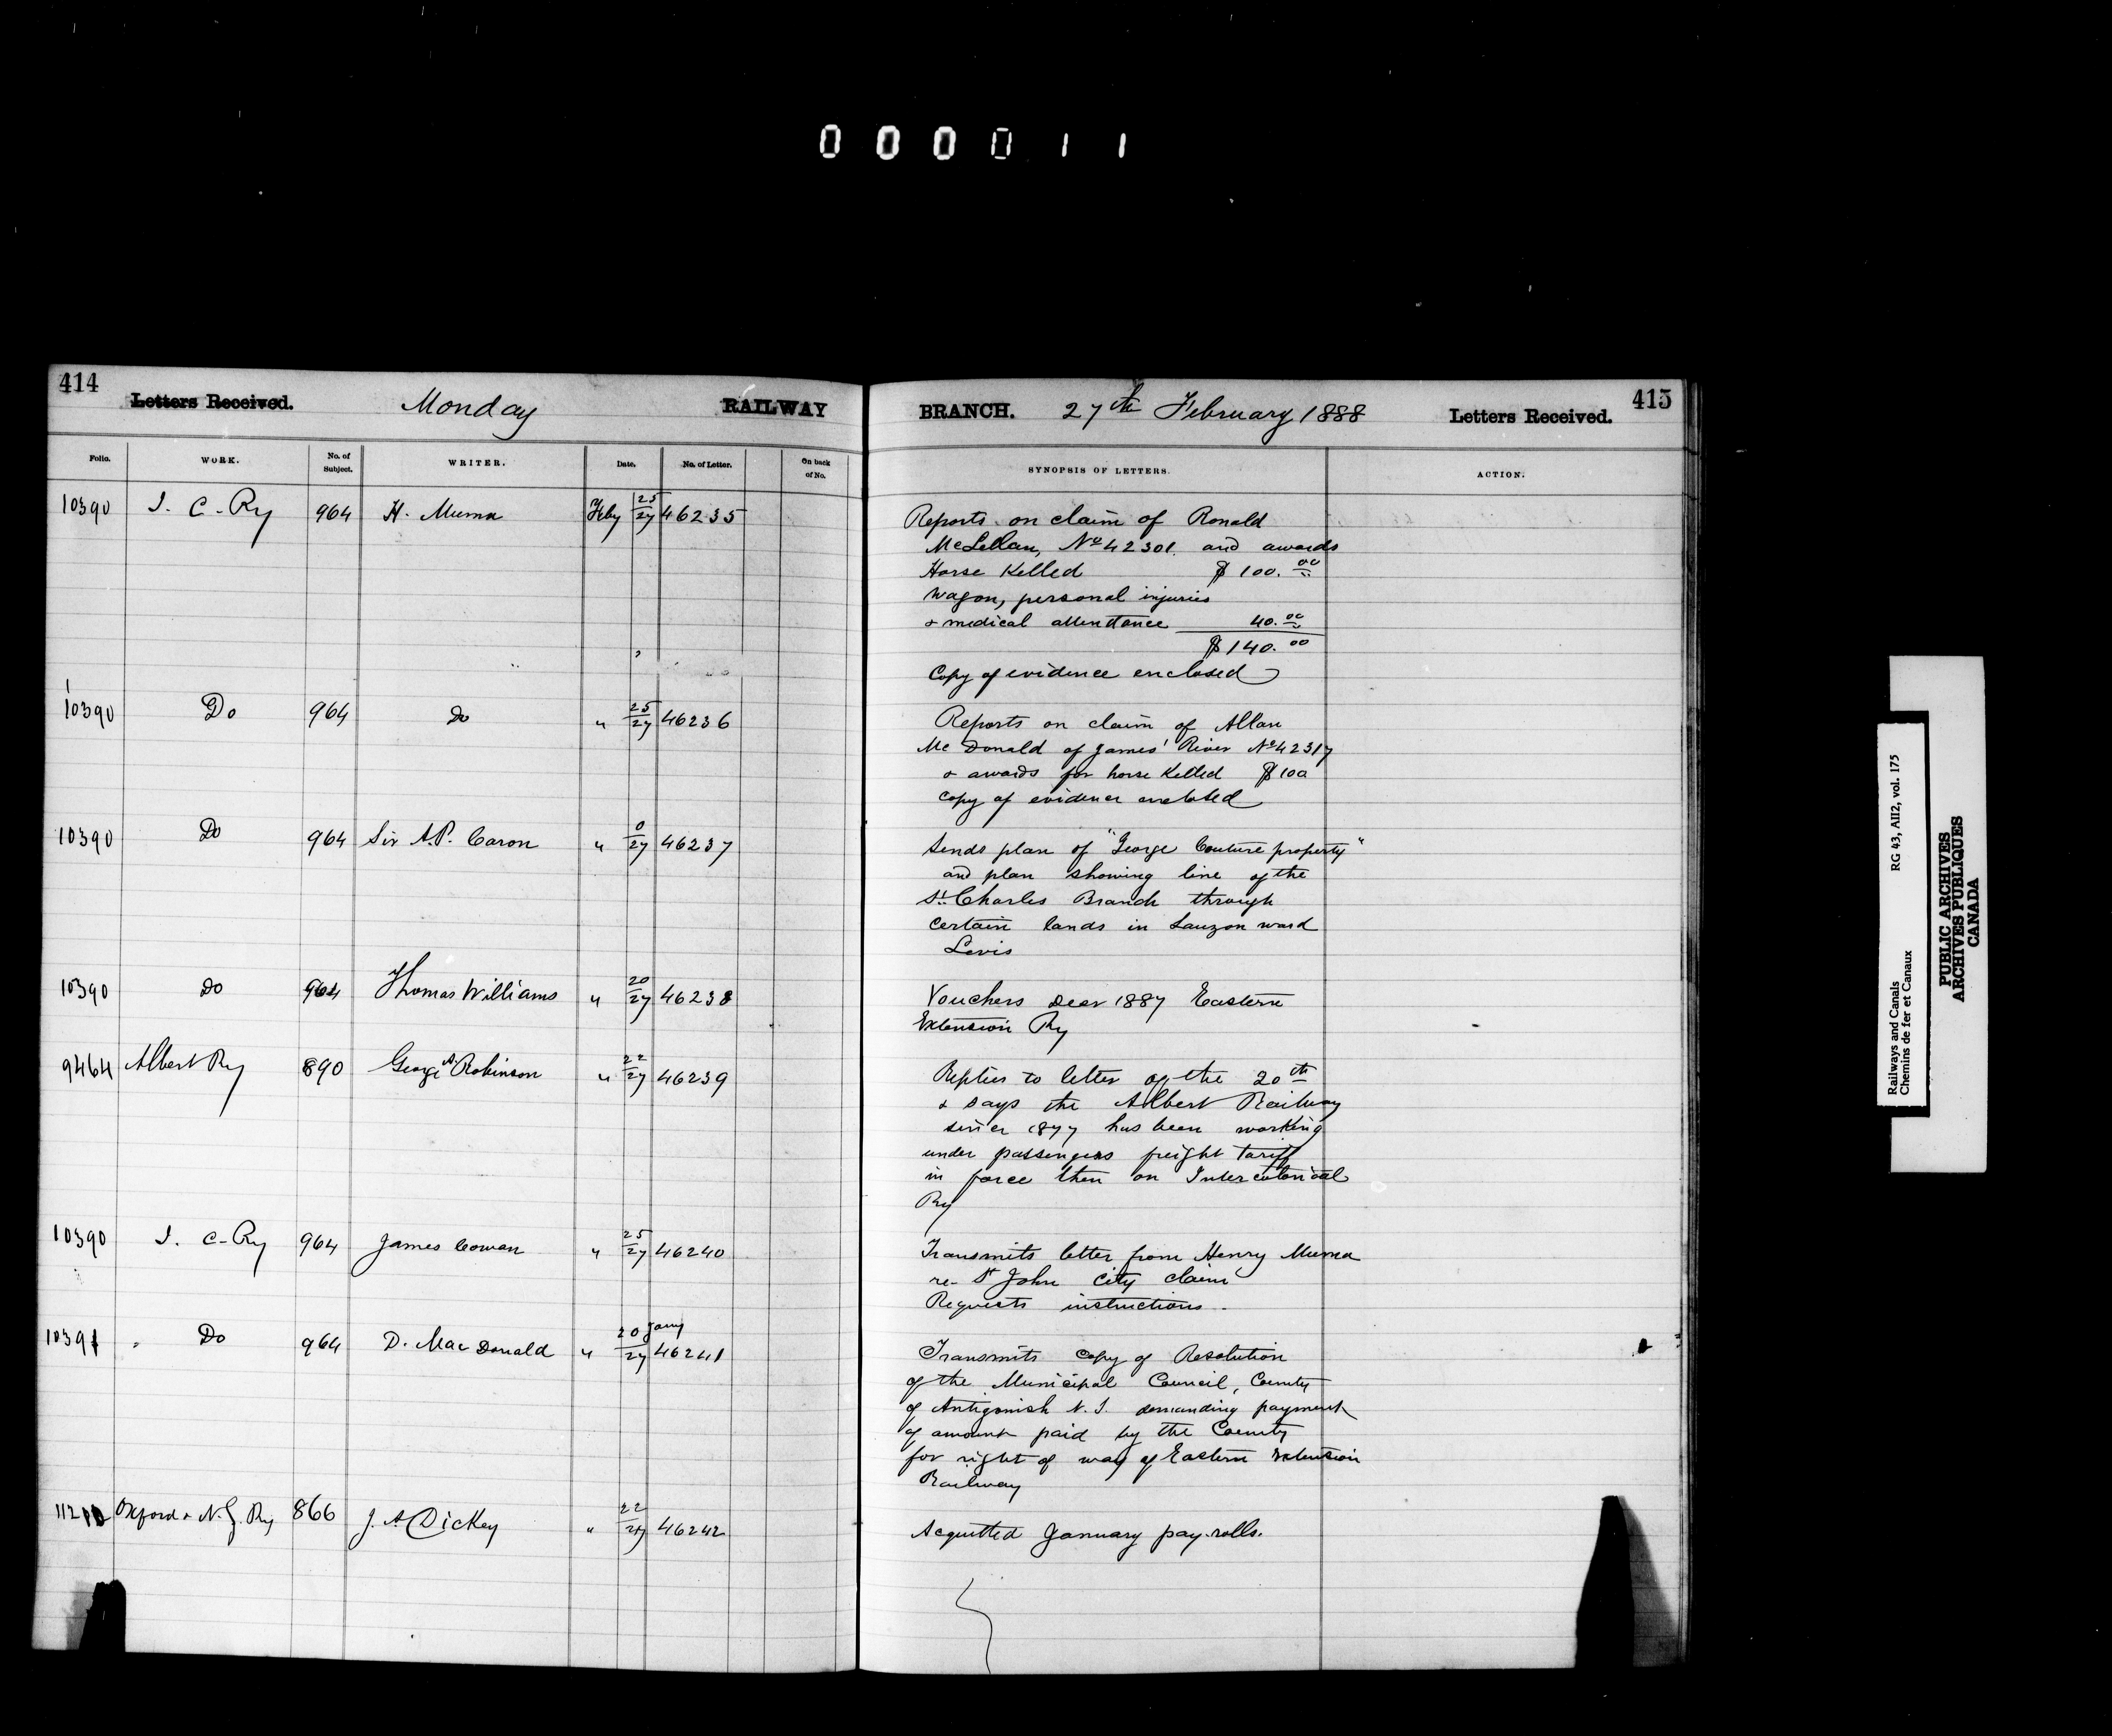 000011
414 Letters Received. Monday RAILWAY
BRANCH. 27th February 1888 Letters Received. 415
Folio. WORK. No. of Subject. WRITER. Date. No. of Letter. On back of No.
SYNOPSIS OF LETTERS. ACTION.
10390 I. C. Ry 964 H. Muma Feby 25/27 46235
Reports on claim of Ronald
McLellan, No 42301. and awards
Horse Killed $100.00
Wagon, personal injuries
& medical attendance 40.00
$140.00
Copy of evidence enclosed
10390 Do 964 Do " 25/27 46236
Reports on claim of Allan
McDonald of James' River No 42317
& awards for horse killed $100
Copy of evidence enclosed
10390 Do 964 Sir A.P. Caron " 0/27 46237
Sends plan of "George Couture property"
and plan showing line of the
St. Charles Branch through
certain lands in Lauzon ward
Levis
10390 Do 964 Thomas Williams " 20/27 46238
Vouchers Decr 1887 Eastern
Extension Ry
9464 Albert Ry 890 George A. Robinson " 22/27 46239
Replies to letter of the 20th
& says the Albert Railway
since 1877 has been working
under passengers freight tariff
in force then on Intercolonial
Ry
10390 I. C. Ry 964 James Cowan " 25/27 46240
Transmits letter from Henry Muma
re- St John City claim
Requests instructions.
10391 Do 964 D. MacDonald " 20 Jany/27 46241
Transmits copy of Resolution
of the Municipal Council, County
of Antigonish N.S. demanding payment
of amount paid by the County
for right of way of Eastern Extension
Railway
Oxford & N.G. Ry 866 J. A. Dickey " 22/27 46242
Acquitted January pay-rolls.
Railways and Canals RG 43, AII2, vol. 175
Chemins de fer et Canaux
PUBLIC ARCHIVES
ARCHIVES PUBLIQUES
CANADA